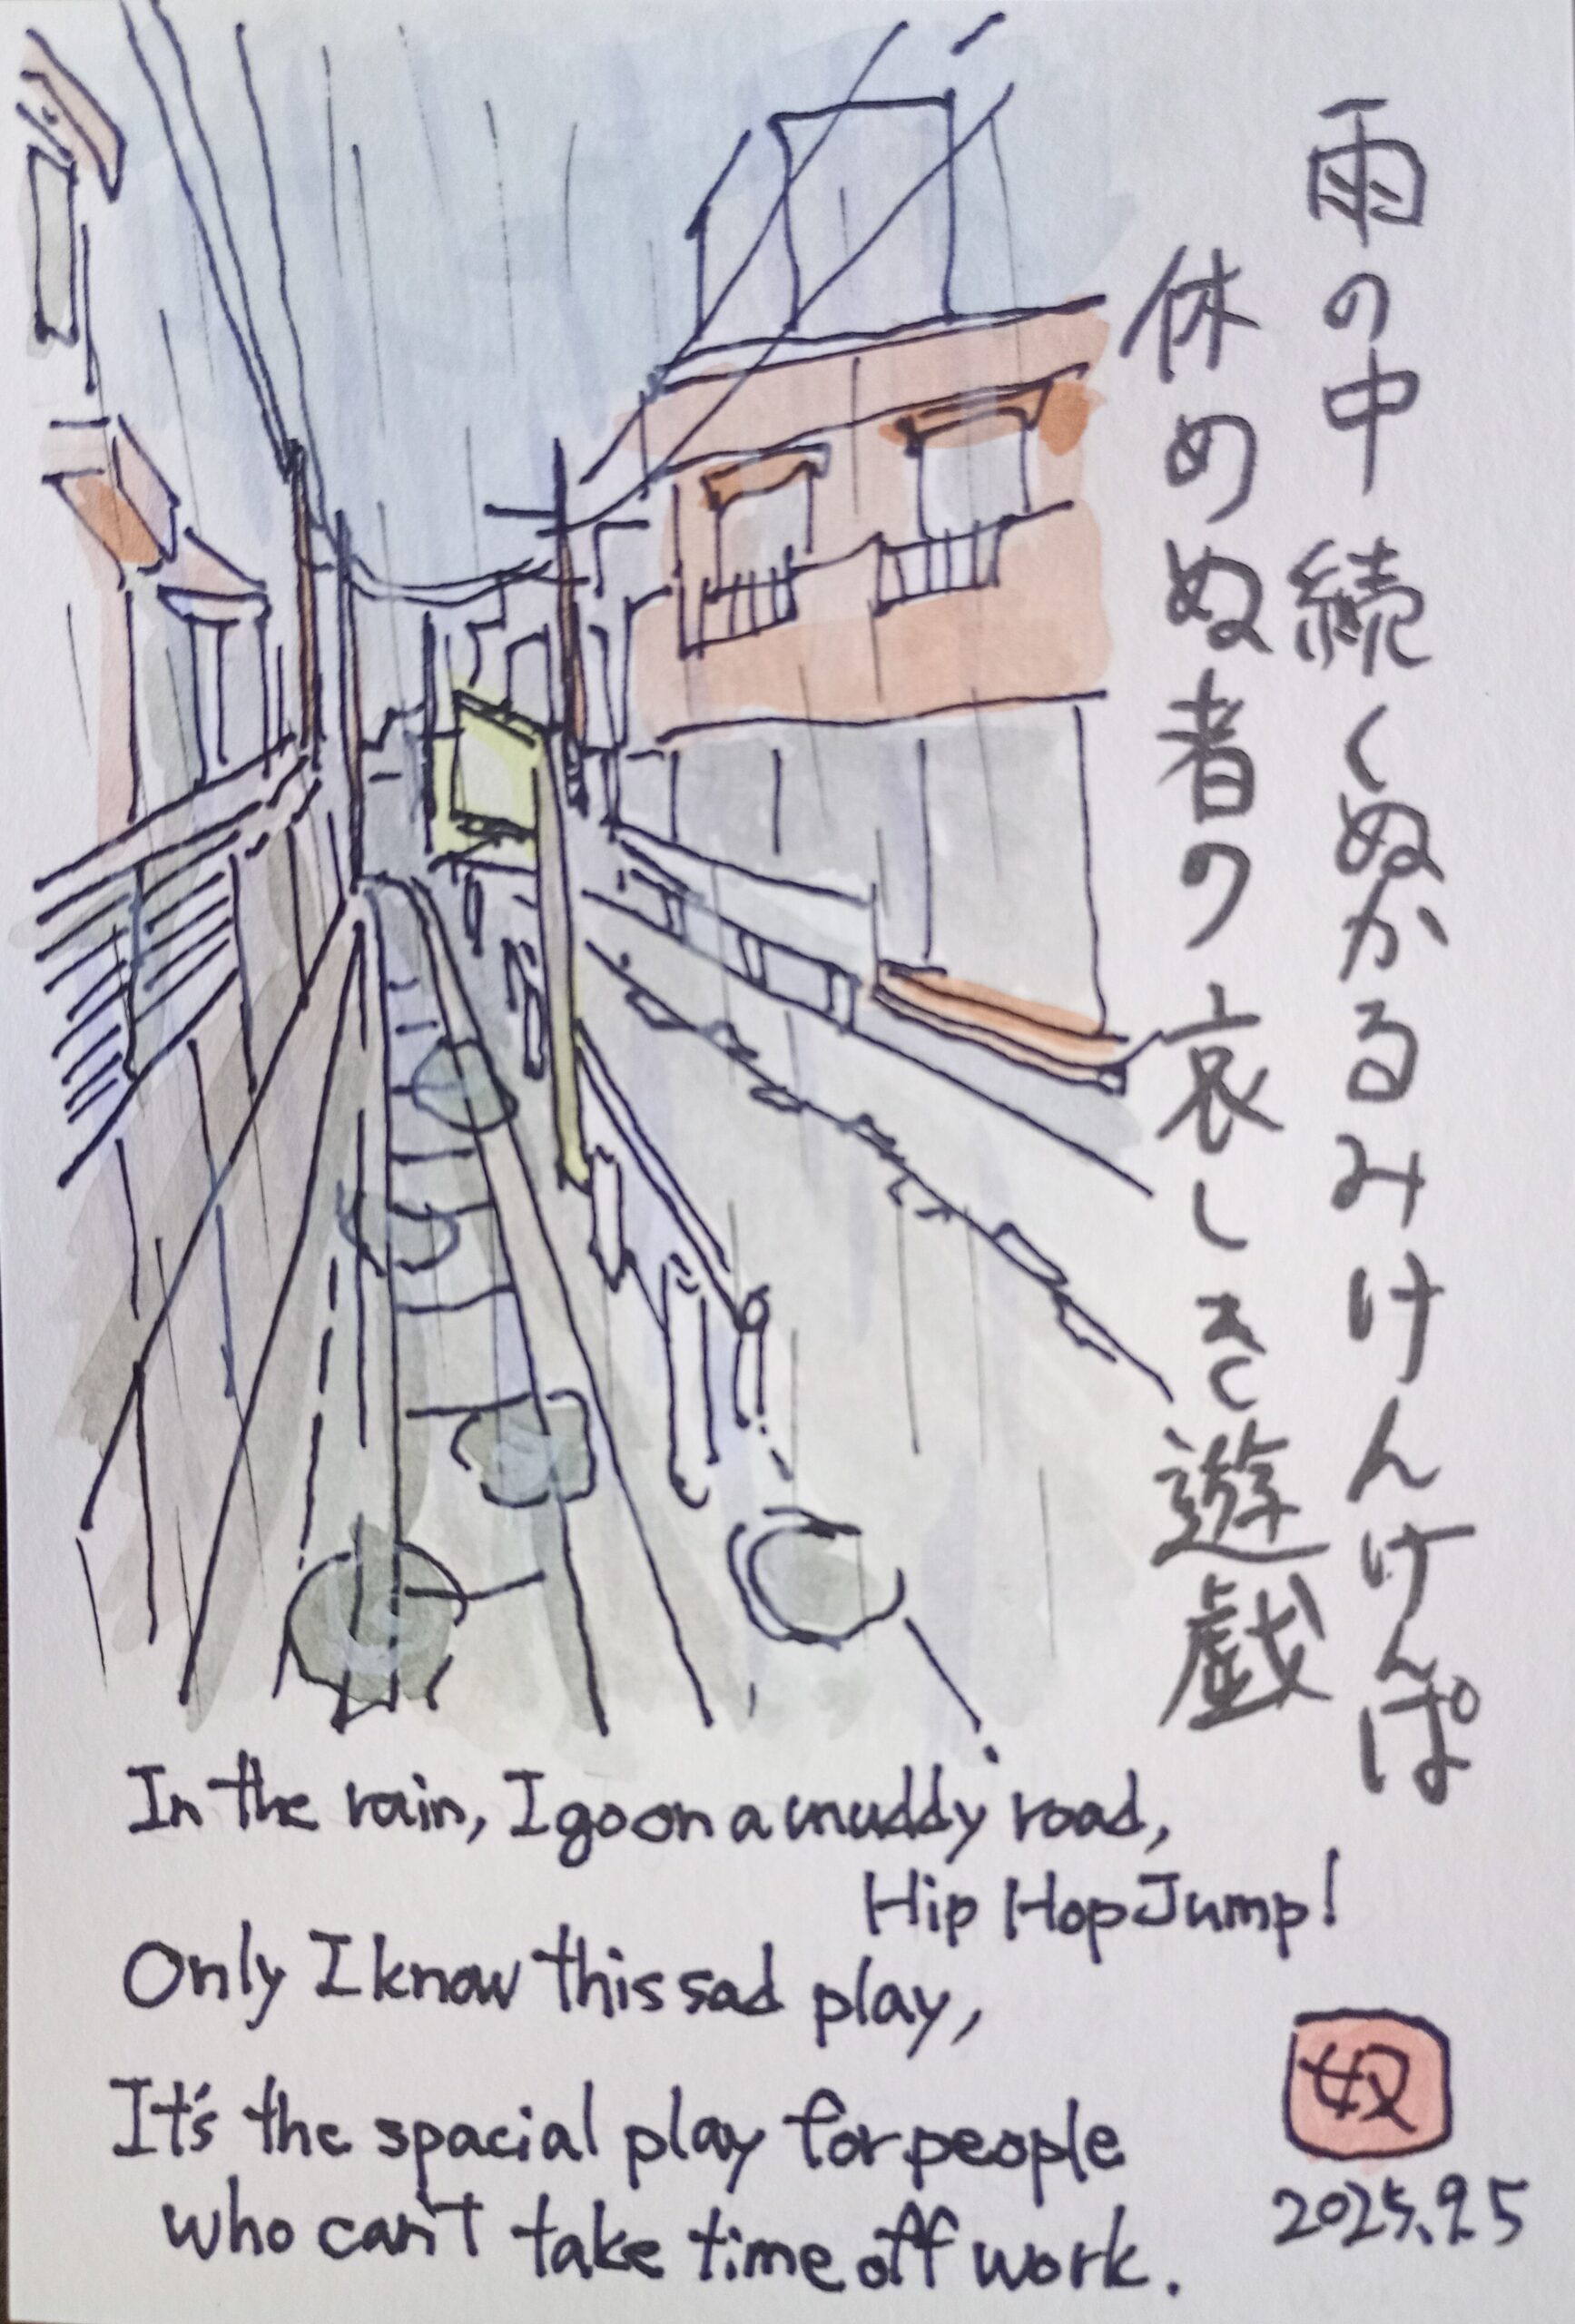 雨の中続くぬかるみけんけんぱ
休めぬ者の哀しき遊戯
In the rain, I go on a muddy road,
Hip Hop Jump!
Only I know this sad play,
It's the spacial play for people
who can't take time off work.
奴
2025.9.5